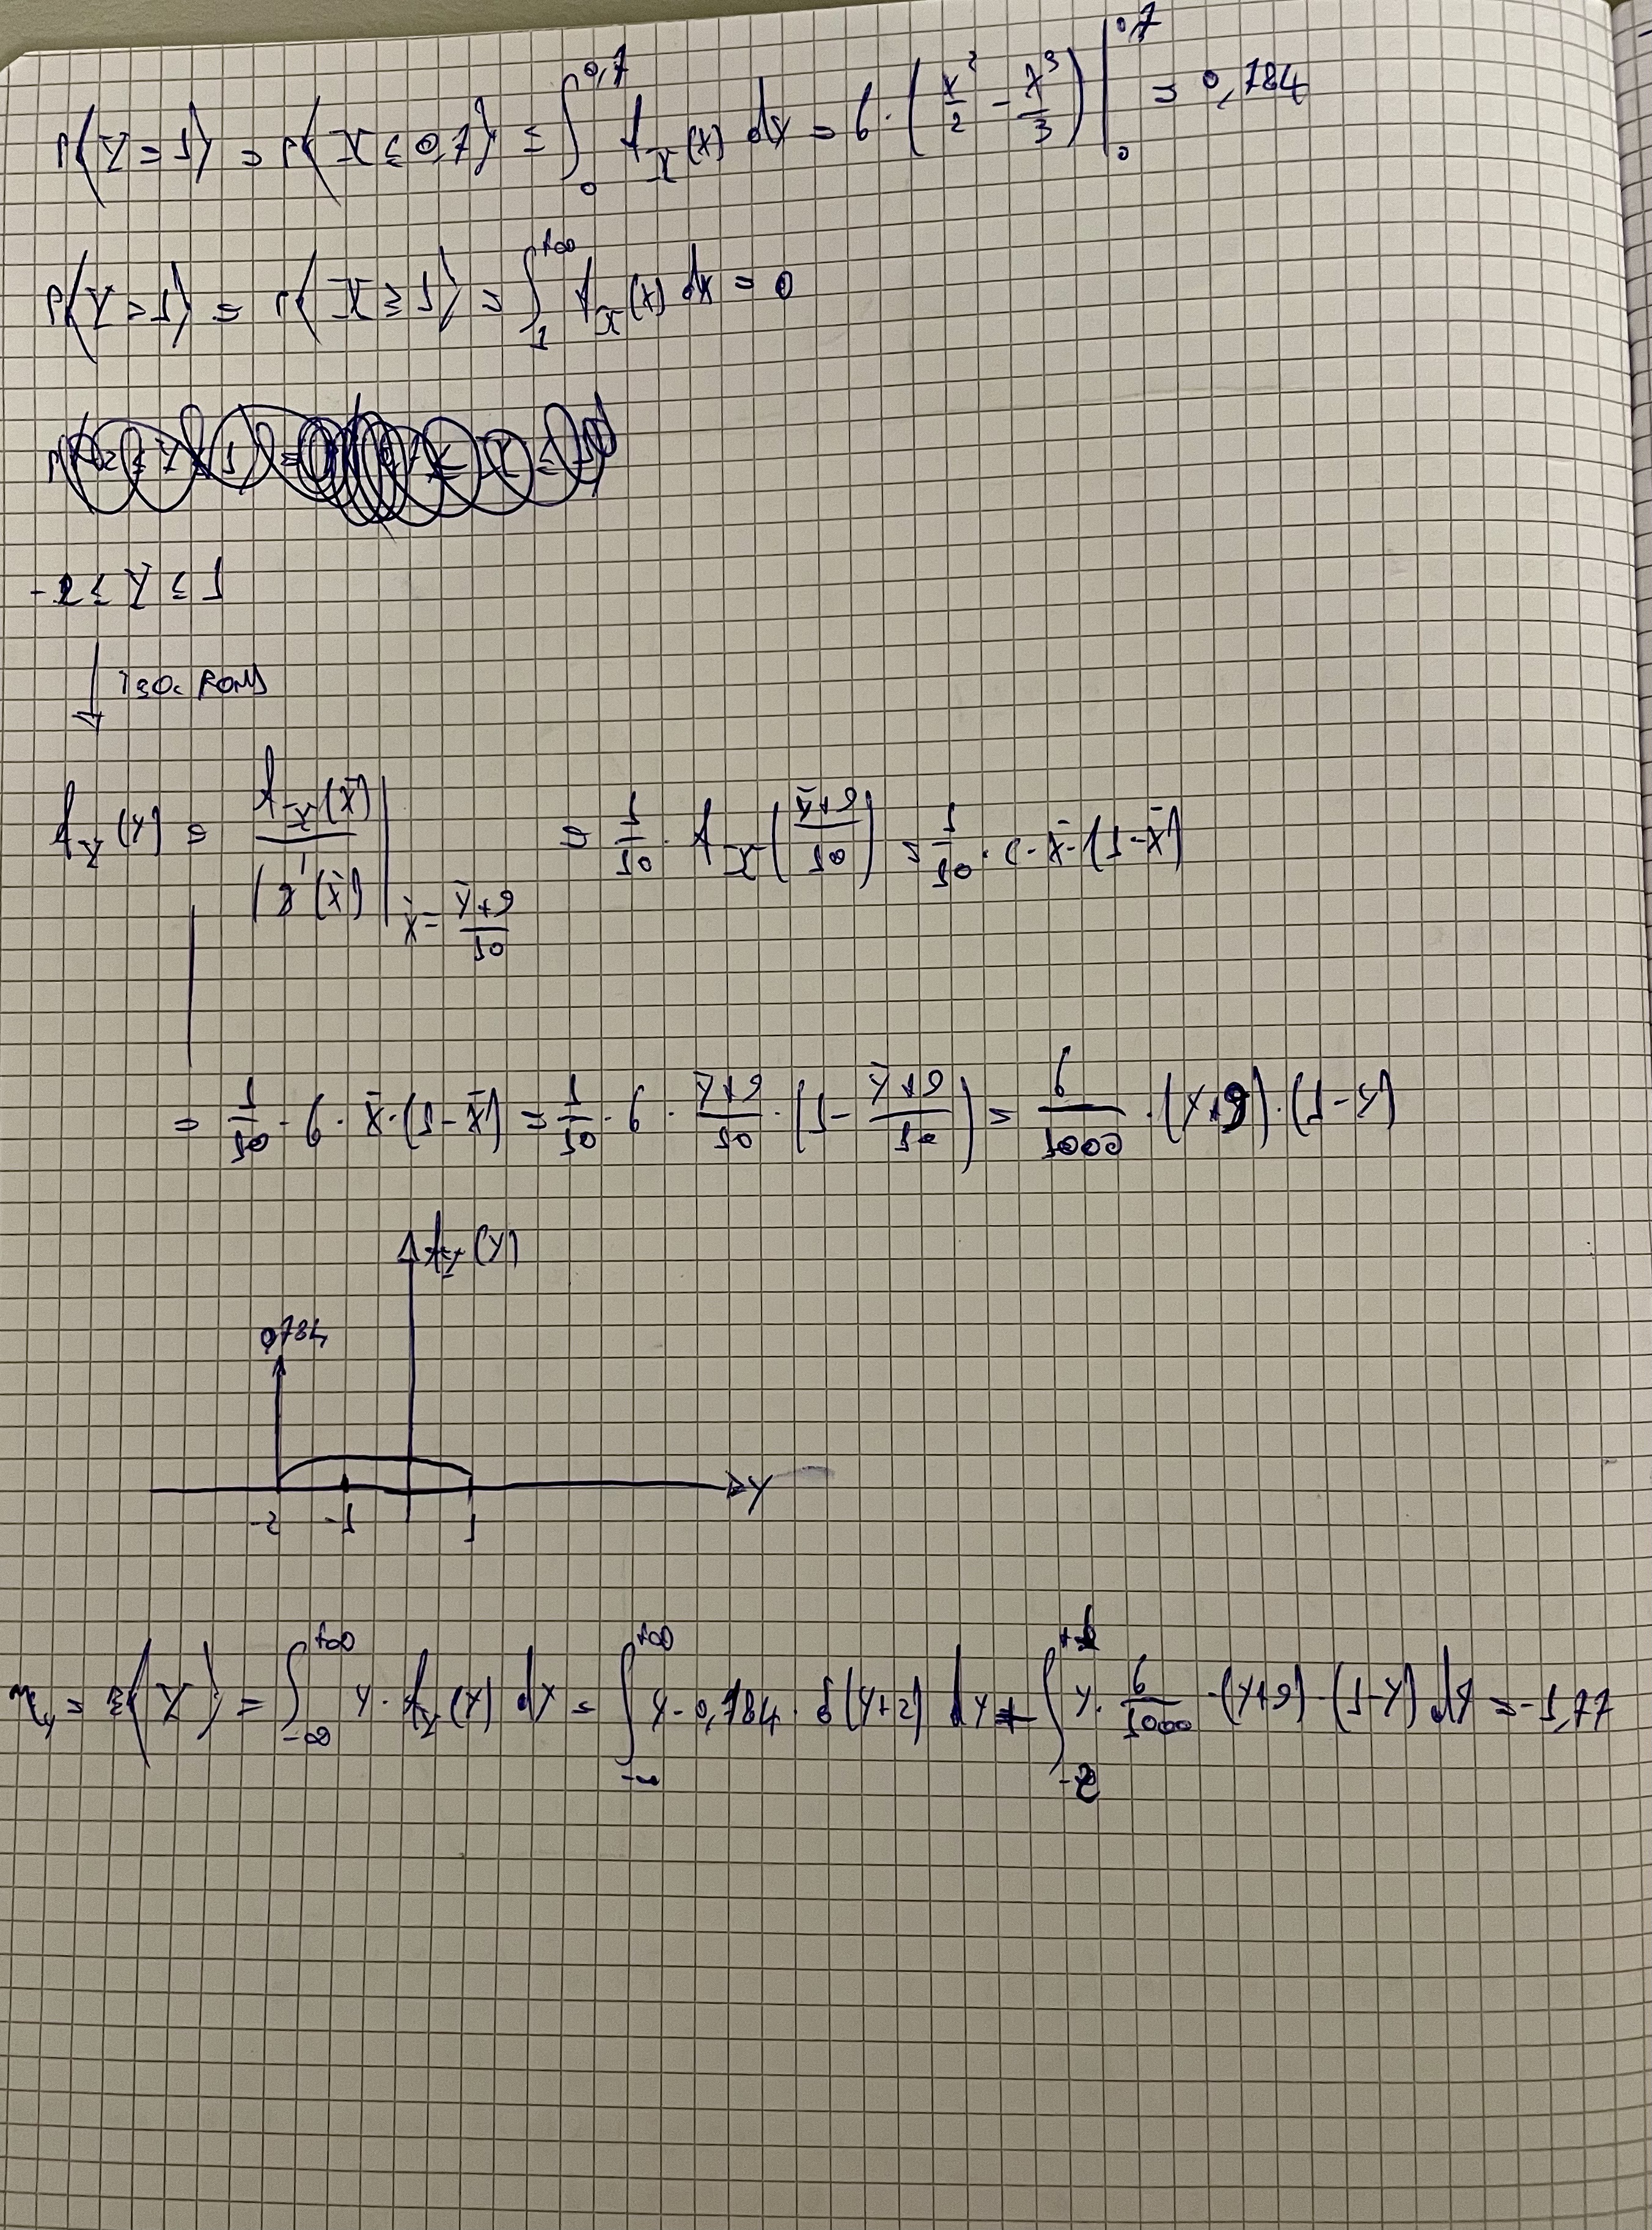 P{Y=1} = P{X≤0,7} = ∫₀^0,7 f_X(x) dx = 6·(x²/2 - x³/3)|₀^0,7 = 0,784
P{Y=1} = P{X≥1} = ∫₁^+∞ f_X(x) dx = 0
-2≤Y≤1
f_Y(y) = f_X(x̄)/|g'(x̄)| |x̄=(y+9)/10 = 1/10 · f_X((y+9)/10) = 1/10 · 6·x̄·(1-x̄)
= 1/10 · 6 · x̄·(1-x̄) = 1/10 · 6 · (y+9)/10 · (1-(y+9)/10) = 6/1000 · (y+9)·(1-y)
f_Y(y)
0,784
y
-2 -1 1
m_y = E{Y} = ∫_-∞^+∞ y · f_Y(y) dy = ∫_-∞^+∞ y·0,784·δ(y+2) dy + ∫_-2^1 y·6/1000·(y+9)·(1-y) dy = -1,77